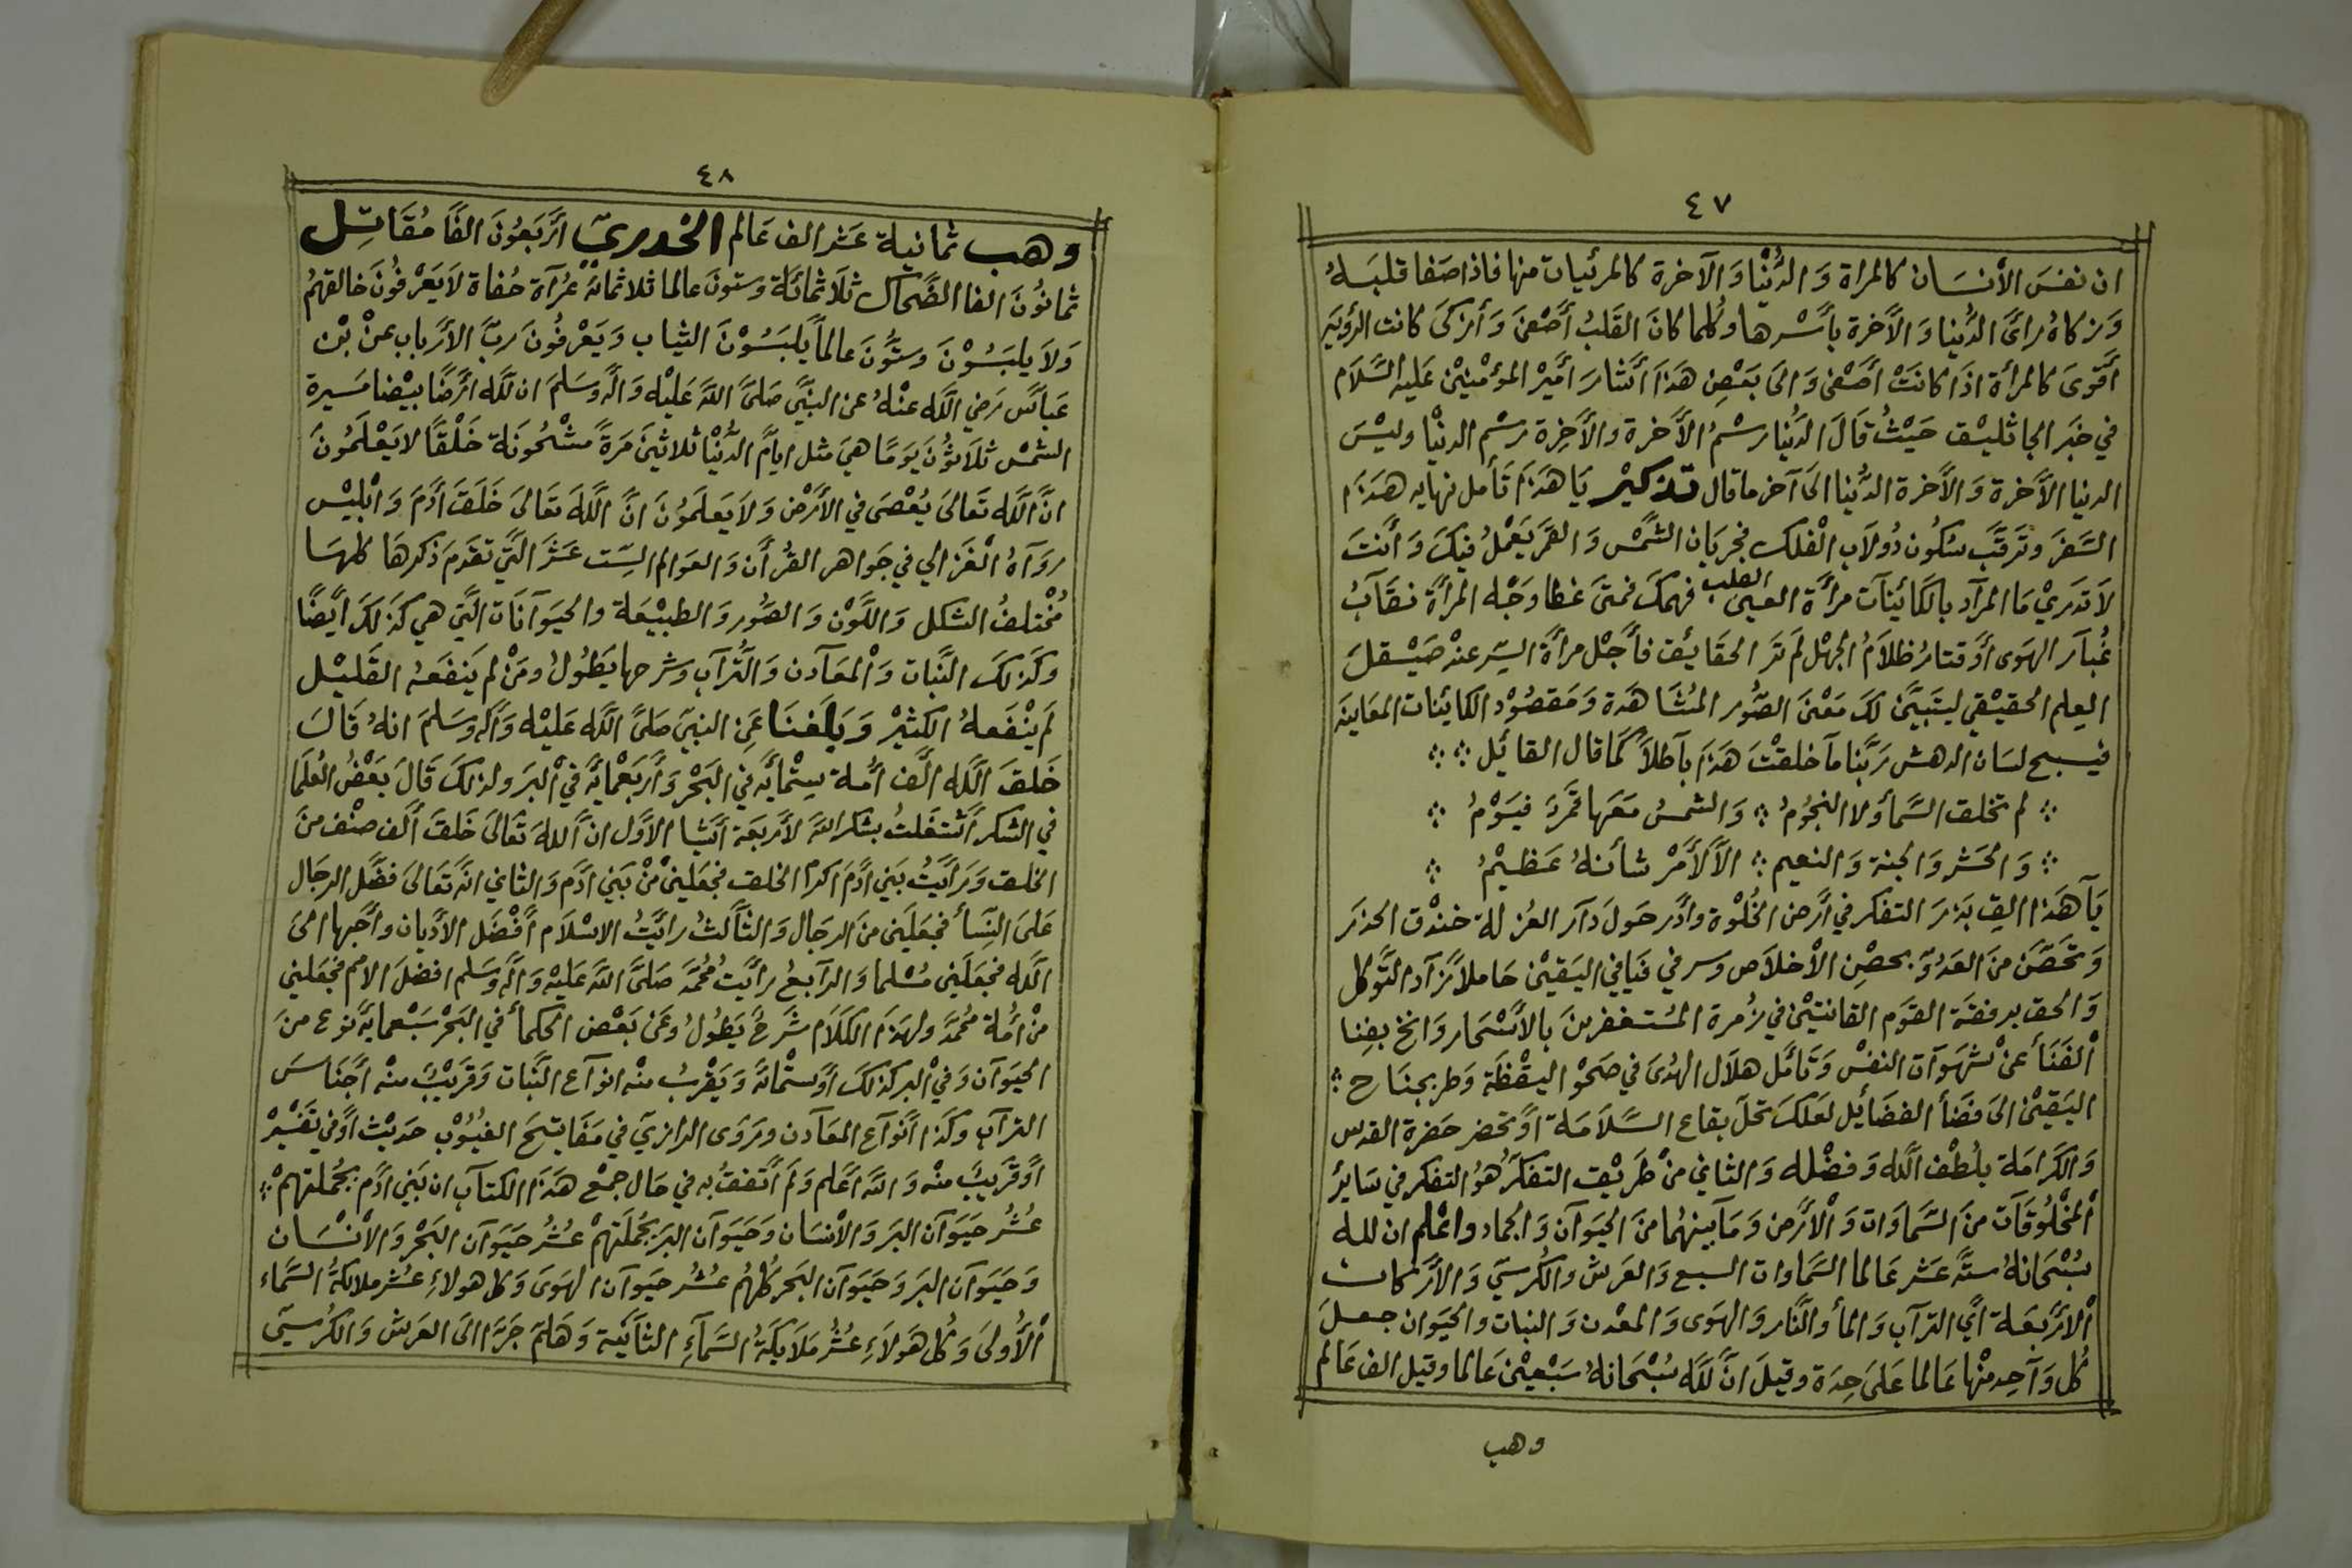 ٤٧
ان نفسَ الأنسَان كالمراة وَ الدُّنْيا وَ الآخرة كالمرئيات منها فاذا صَفا قلبَهُ
وَزكاهُ رائَ الدُّنيا وَ الأَخرة بأَسْرها وكُلما كانَ القَلبُ أَصْفىَ وَ أزكىَ كانت الرؤيَة
أَقوىَ كالمرأة اذَا كانَتْ أصَفى وَالىَ بَعْضِ هَذَا أشَارَ أَمِيْر المؤمْنِيْن عَليه السَّلاَم
في خبَر الجاثليْق حَيْثُ قَالَ الدُّنيا رسْمُ الأَخرة والأَخِرة رسْم الدنْيا وليْسَ
الدنيا الأَخرة وَ الأَخرة الدُّنيا الىَ آخر ما قال تذكيْر يَا هَذَا تَأمل نهايه هَذا
السَّفرَ وتَرقَّب سكُون دُولاَب الْفلك فجريَان الشَّمْس وَ القمَر يَعْملُ فيكَ وَ أنتَ
لاَ تدَريْ مَا المرآد بالكَائينَآت مرأَة القلب العمىَ فهمكَ فمتىَ غطا وجَه المرأةَ نقَآبُ
غُبآر الهَوى أوَ قتارُ ظِلاَمُ الجهْل لَم تَر الحقَايُق فأَجْل مرأَة السِّر عندْ صَيْقلَ
العِلم الحقيْقي ليتَبيَّنَ لكَ مَعْنىَ الصُّور المُشَاهَدة وَمَقصُوْد الكائينات المعَاينَه
فيسبح لسَان الدهشِ رَبَّنا مآخلقْتَ هَذَا بآطلاً كمَا قال القائيل ؞ ؞
؞ لم تخلق السَّمأ ولا النجُومُ ؞ وَ الشمسُ مَعَها قمَرٌ فيَوْمُ ؞
؞ وَ الحَشر وَ الجنة وَ النعيم ؞ الأَ لأَمْر شأنهُ عَظيْمُ ؞
يَآ هَذا الق بَذرَ التفكر في أرَض الخُلوْة وأدَر حَولَ دَآر العُزلة خندْق الحذَر
وَتحَصَّن منَ العَدُوَّ بحصْنِ الأخلاَص وسر في فيَافي اليَقيْن حَاملاً زآد التَّوكل
وَ الحق برفقَة القوَم القانتيْن في زُمرة المسُتغفرينَ بالأَسْحَار وَ انخ بفِنا
الْفَنَأ عنْ شهَوآت النفسْ وَتَأمَّل هلاَل الهُدىَ في صَحْوْ اليقظَة وَطر بجنَاح ؞
اليَقيْن الىَ فضَأ الفضَائيل لعَلكَ تحَلَ بقاع السَّلاَمَة أوَ تحضر حَضرة القدس
وَ الكَرامَة بلُطْف الله وَفضْله وَ الثاني منْ طَريْق التفكرَ هُوُ التفكر في سَائِر
المْخْلُوقَآت منَ السَّماوَات وَ الأَرَض وَمَا بينهُما منَ الحَيوآن وَ الجماد واعْلم ان لله
سُبْحَانهُ ستَّة عَشر عَالما السَّماوات السبع وَ العَرش والكُرسيّ وَ الأَرَكان
الأرْبَعَة أيَ الترآب وَ المأ والنَّار وَ الهَوى وَ المعْدن وَ النبات والحيَوان جعلَ
كُل وَآحِد منْها عَالما عَلىَ حِدَة وقيلَ انَّ لله سُبْحَانهُ سَبْعيْنَ عَالما وقيل الف عَالم
وهب
٤٨
وهب ثمانية عَشر الف عَالم الخدريّ أرَّبَعُونَ الفَا مُقاتِل
ثمانُونَ الفا الضَّحاك ثلَاثمائَة وستونَ عالما ثلاثمائة عُرآة حُفاة لاَ يَعَرْفُونَ خالقهمُ
وَلاَ يلبَسُوْنَ وستُّونَ عالماً يَلبَسُوْنَ الثياب وَيَعَرْفُونَ ربَّ الأرَّباب عنْ بْن
عَباسَّ رَضي الله عنْهُ عن النبَّي صَلىَّ اللهَ عَليْه وَآله وسَلمَ ان لله أرَضًا بيْضا مَسيرة
الشمسْ ثلَاثوُنَ يَومًا هيَ مثل ايامَّ الدُّنيْا ثلاثينَ مَرةً مشْحُونَة خَلْقًا لا يَعْلَمُونَ
انَّ الله تَعَالىَ يُعْصَى في الأَرَضْ وَلاَ يَعلَموُنَ انَّ اللهَ تعَالىَ خَلَقَ آدَمَ وَ ابْليْس
روَآهُ الْغَزالي في جَواهر القرُأن وَ العوَالم السِّت عَشَر التَّي تقدَم ذكرهَا كلهَا
مُخْتلفُ الشكل وَ اللَّوْن وَ الصُّور وَ الطبيْعَة والحيَوآنَات التَّي هي كذَلكَ أيَضًا
وكَذلكَ النَّبات وَ المْعَآدن وَ التُّرآب وشرحها يَطُولُ ومَنْ لم يَنفعَهُ القَليْل
لَم ينْفَعهُ الكثيْر وَبَلَغنَا عَنِ النبيّ صَلىَّ الله عَليْه وَآله وسَلمَ انهُ قَالَ
خَلقَ الله ألَف أمُة سِتْمايَّه في البَحْر وَأربَعْمائَة في البرَ ولذلكَ قَالَ بعَضُ العُلمَا
في الشكر أشْتغَلتُ بشكر اللهَ لأَربعَة أشَيا الأوَل انَّ اللهَ تَعَالىَ خَلقَ ألَف صنْف منَ
الخلق وَرَأيَتُ بَني آدَمَ اكرم الخلق فجعَلنيْ منْ بَني آدَم وَ الثاني انَه تَعَالىَ فضَّل الرجَال
عَلىَ النِّسأ فجعَلَني منَ الرجَال وَ الثآلثُ رايَتُ الاسْلاَم أفَضْل الأدَيان وأحَبها الىَ
الله فجعَلَني مسُلما وَ الرآبعُ رأيَتُ محُمَّد صَلىَّ اللهَ عَليْه وَآله وسَلم افضلَ الأمم فجعَلني
منْ أمُة محُمَّد ولهَذَا الكَلَام شَرحُ يَطُولُ وعَنَ بَعَض الحكمأ في البَحْر سَبْعمايَة نوع منَ
الحيَوآن وَفي البر كذلكَ أوَ ستْمائَة وَيَقربُ منْه انوآع النَّبات وَقريَبٌ منْه أجَنَاسَ
الترآب وكَذا أنَوآع المعَآدن ورَوَى الرازيَ في مَفَاتيحَ الغيُوْب حَديْث أوَ في تفَسْيْر
أوَ قريَبَ منْه وَ اللهَ أعَلم وَلَم أتَفقُ به في حَال جمْع هَذَا الكتآب ان بَني آدَم بجُملتهمْ ؞
عُشُر حَيَوآن البَر وَ الأنسَان وَحَيَوآن البَر بجُملَتهمْ عُشُر حيَوآن البَحْر وَ الأنْسَان
وَحَيَوآن البَر وَحَيَوآن البَحر كلهُم عشُر حيوآن الهوَىَ وَكل هولاءِ عشُر ملايكةُ السَّماء
الْأولىَ وَكُل هَولاَءِ عشُر مَلاَيكَةُ السَّمآءِ الثآنَية وَهَلمّ جَرَّا الىَ العَرش وَ الكرُسيّ